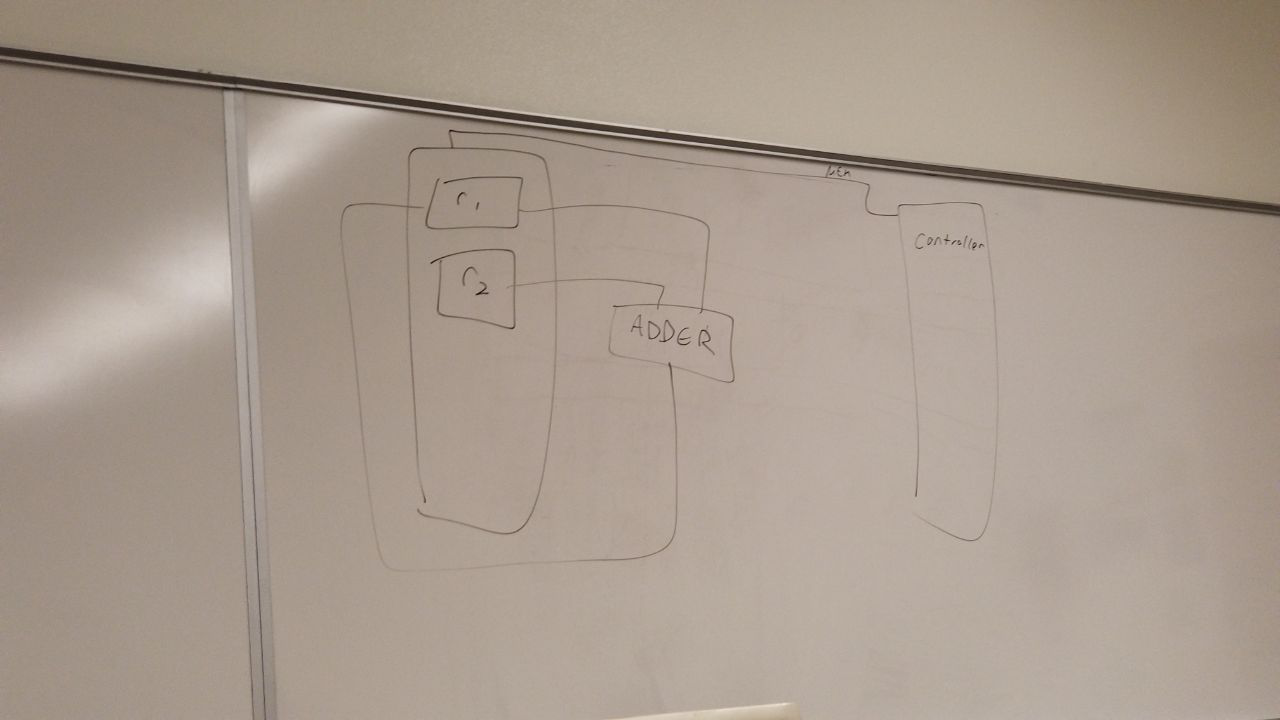 r1
r2
ADDER
Controller